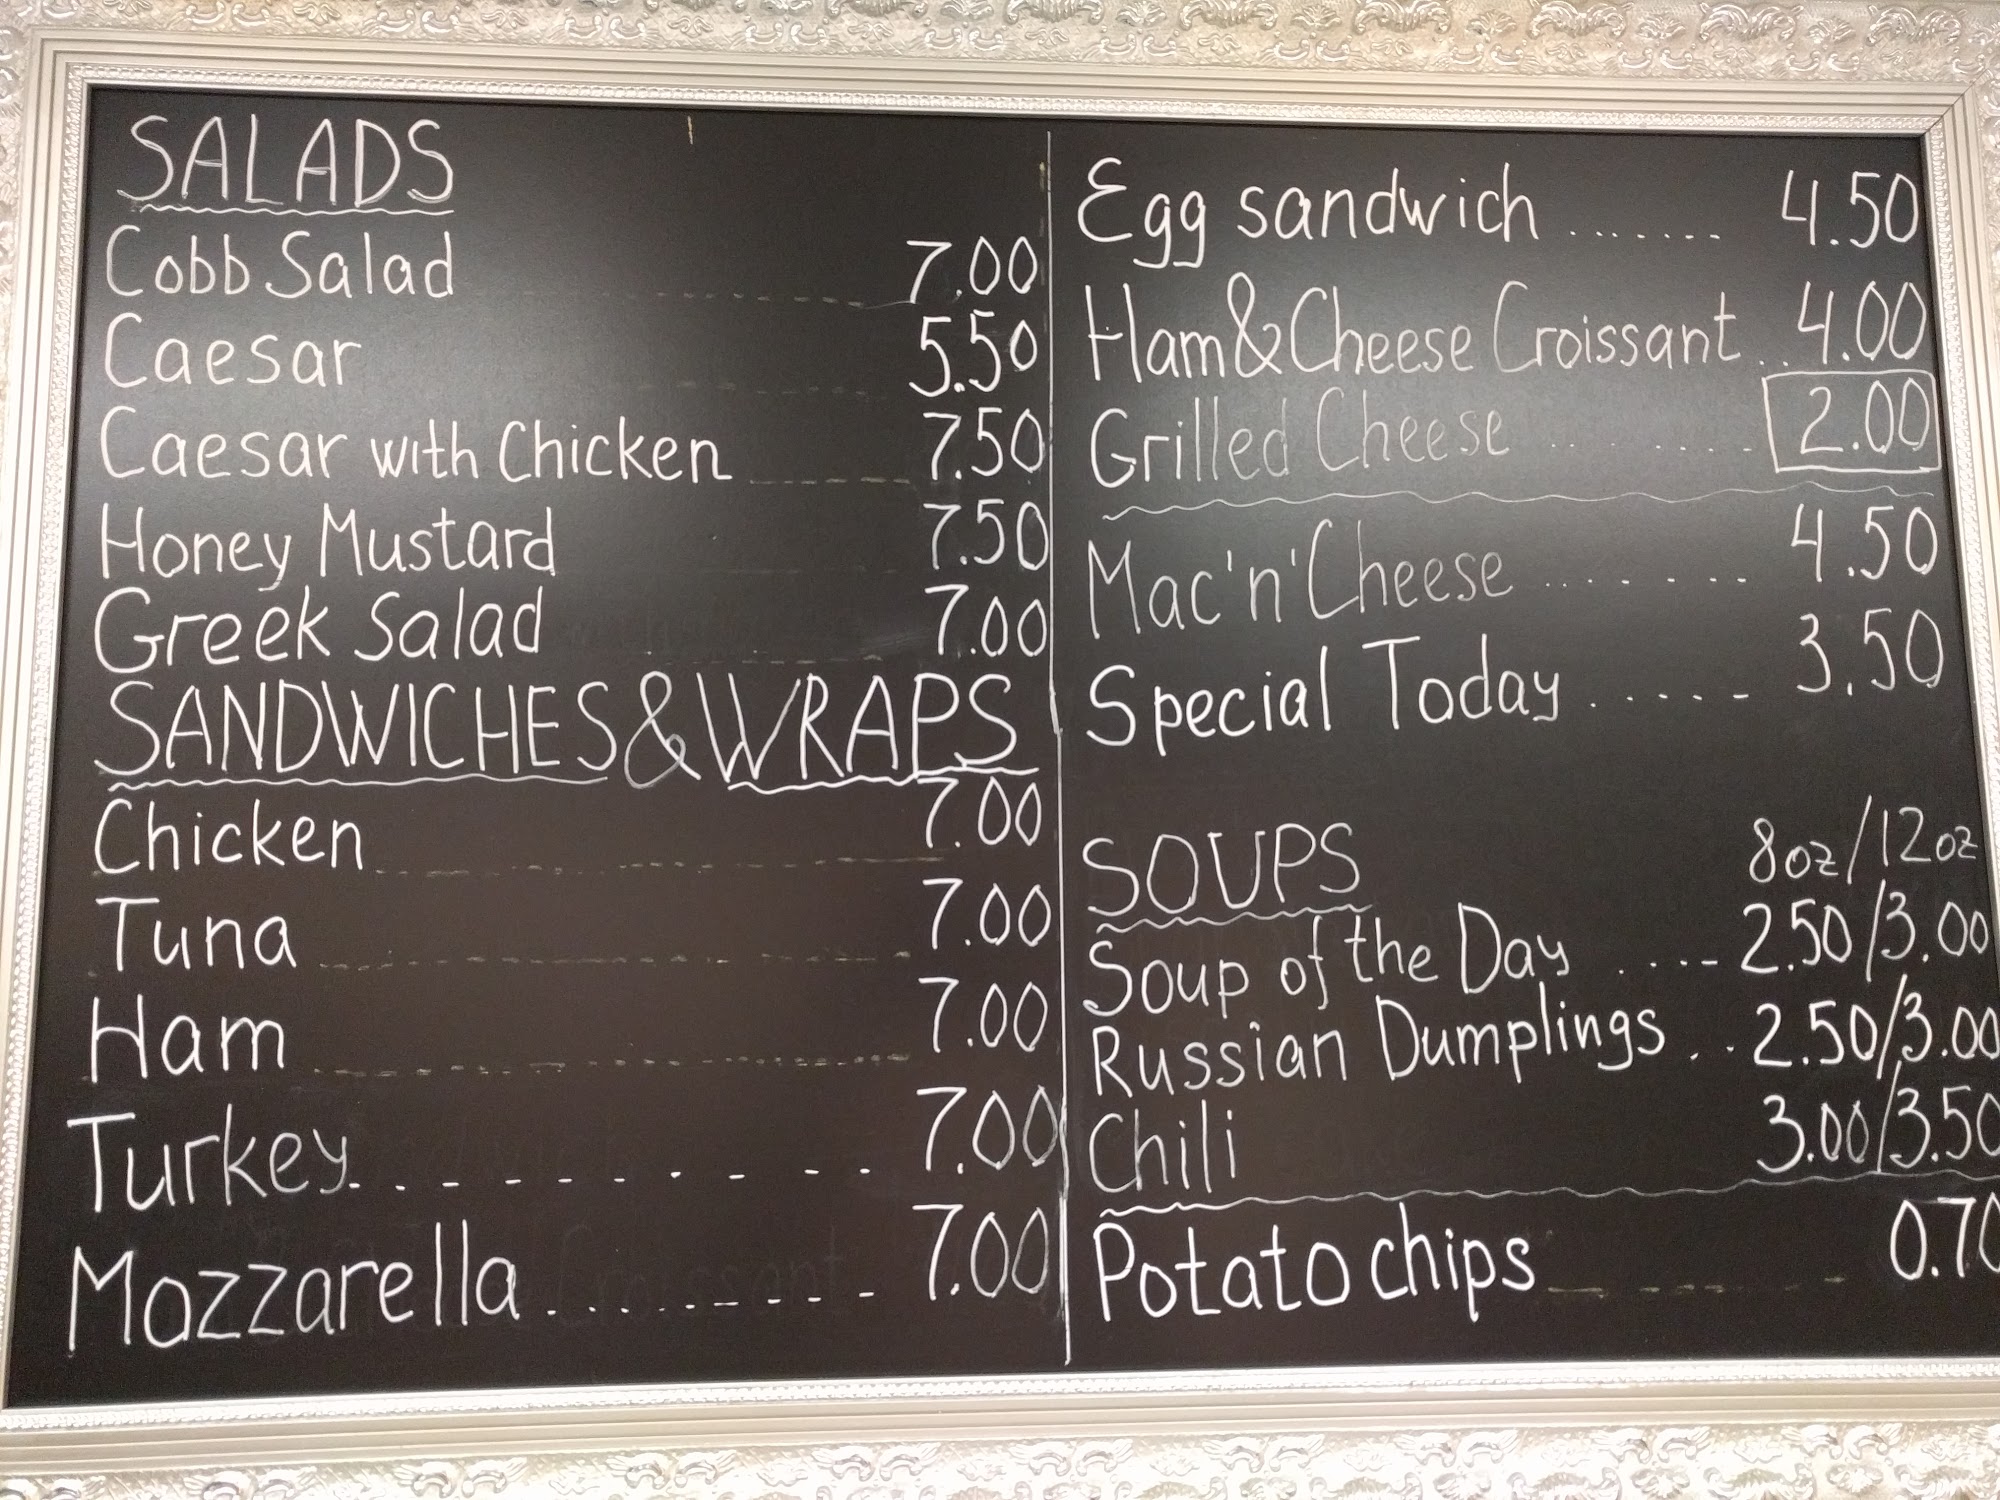 SALADS
Cobb Salad 7.00
Caesar 5.50
Caesar with Chicken 7.50
Honey Mustard 7.50
Greek Salad 7.00
SANDWICHES & WRAPS
Chicken 7.00
Tuna 7.00
Ham 7.00
Turkey 7.00
Mozzarella 7.00
Egg sandwich 4.50
Ham & Cheese Croissant 4.00
Grilled Cheese 2.00
Mac'n'Cheese 4.50
Special Today 3.50
SOUPS 8oz/12oz
Soup of the Day 2.50/3.00
Russian Dumplings 2.50/3.00
Chili 3.00/3.50
Potato chips 0.70